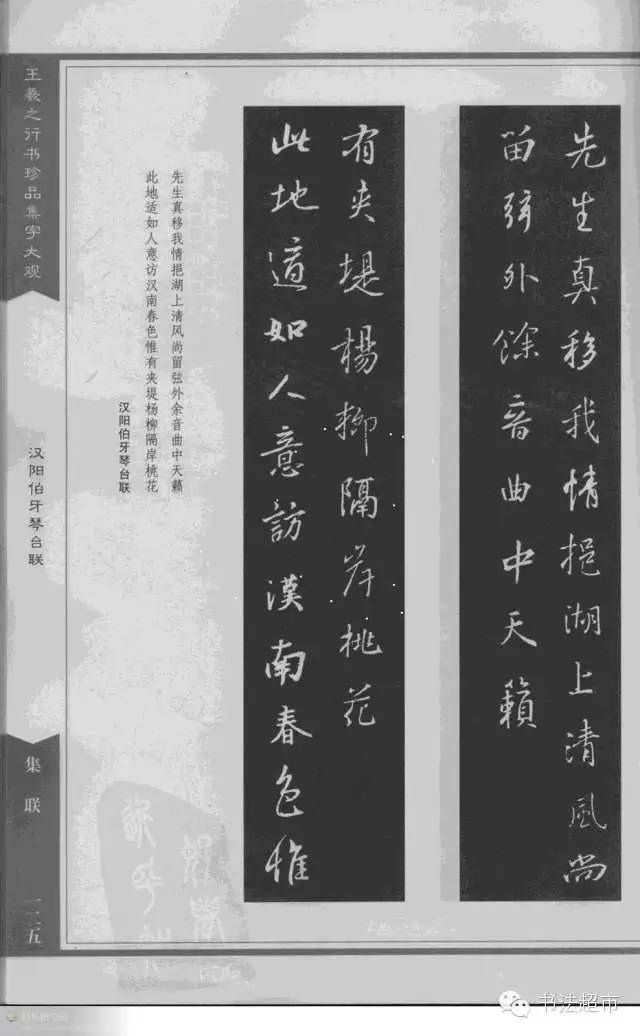 先生真移我情挹湖上清風尚
留弦外餘音曲中天籟
此地適如人意訪漢南春色惟
有夾堤楊柳隔岸桃花
先生真移我情挹湖上清风尚留弦外余音曲中天籁
此地适如人意访汉南春色惟有夹堤杨柳隔岸桃花
汉阳伯牙琴台联
王羲之行书珍品集字大观
汉阳伯牙琴台联
集联
一二五
书法超市